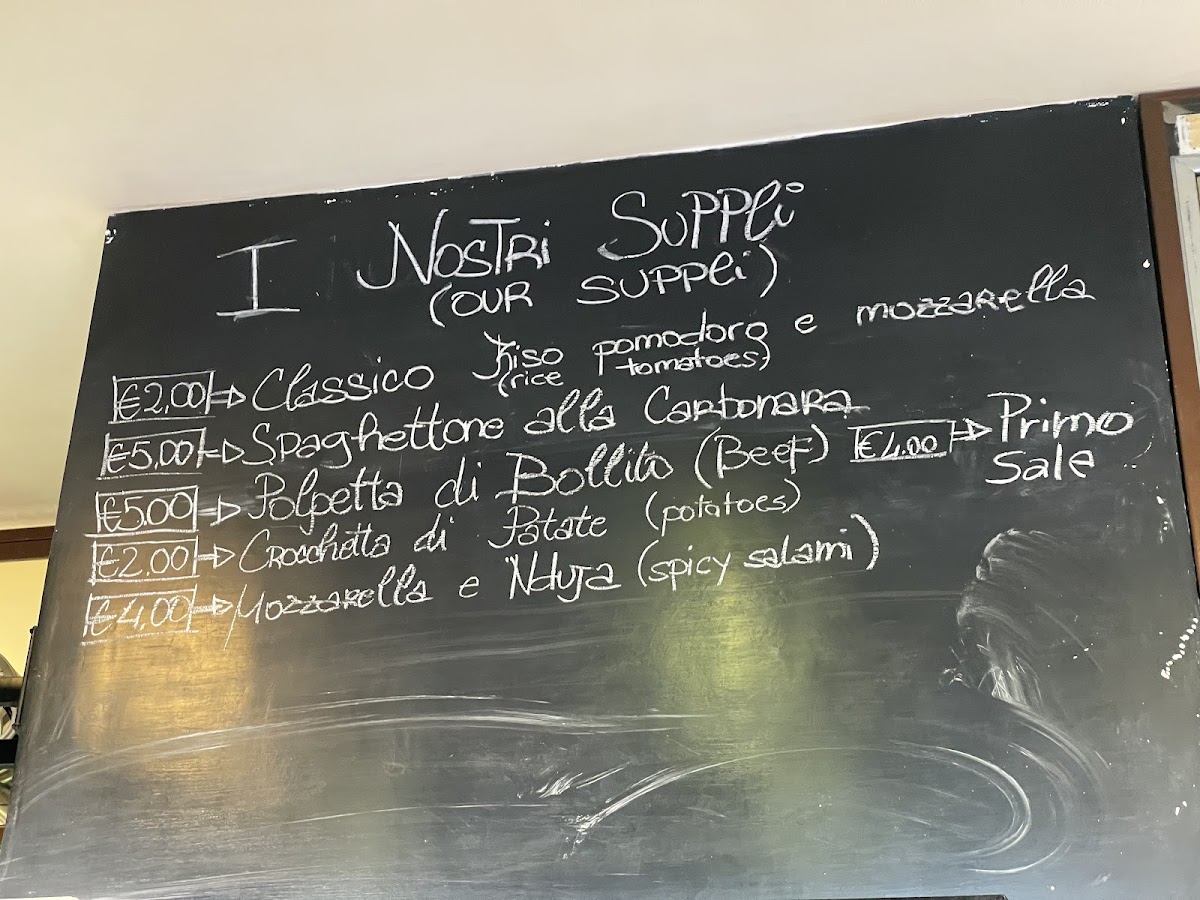 I NOSTRI SUPPLi
(OUR SUPPLi)
€2,00 ⇒ Classico Riso pomodoro e mozzarella
(rice tomatoes)
€5,00 ⇒ Spaghettone alla Carbonara
€5,00 ⇒ Polpetta di Bollito (Beef)
€4,00 ⇒ Primo
Sale
€2,00 ⇒ Crocchetta di Patate (potatoes)
€4,00 ⇒ Mozzarella e 'Nduja (spicy salami)